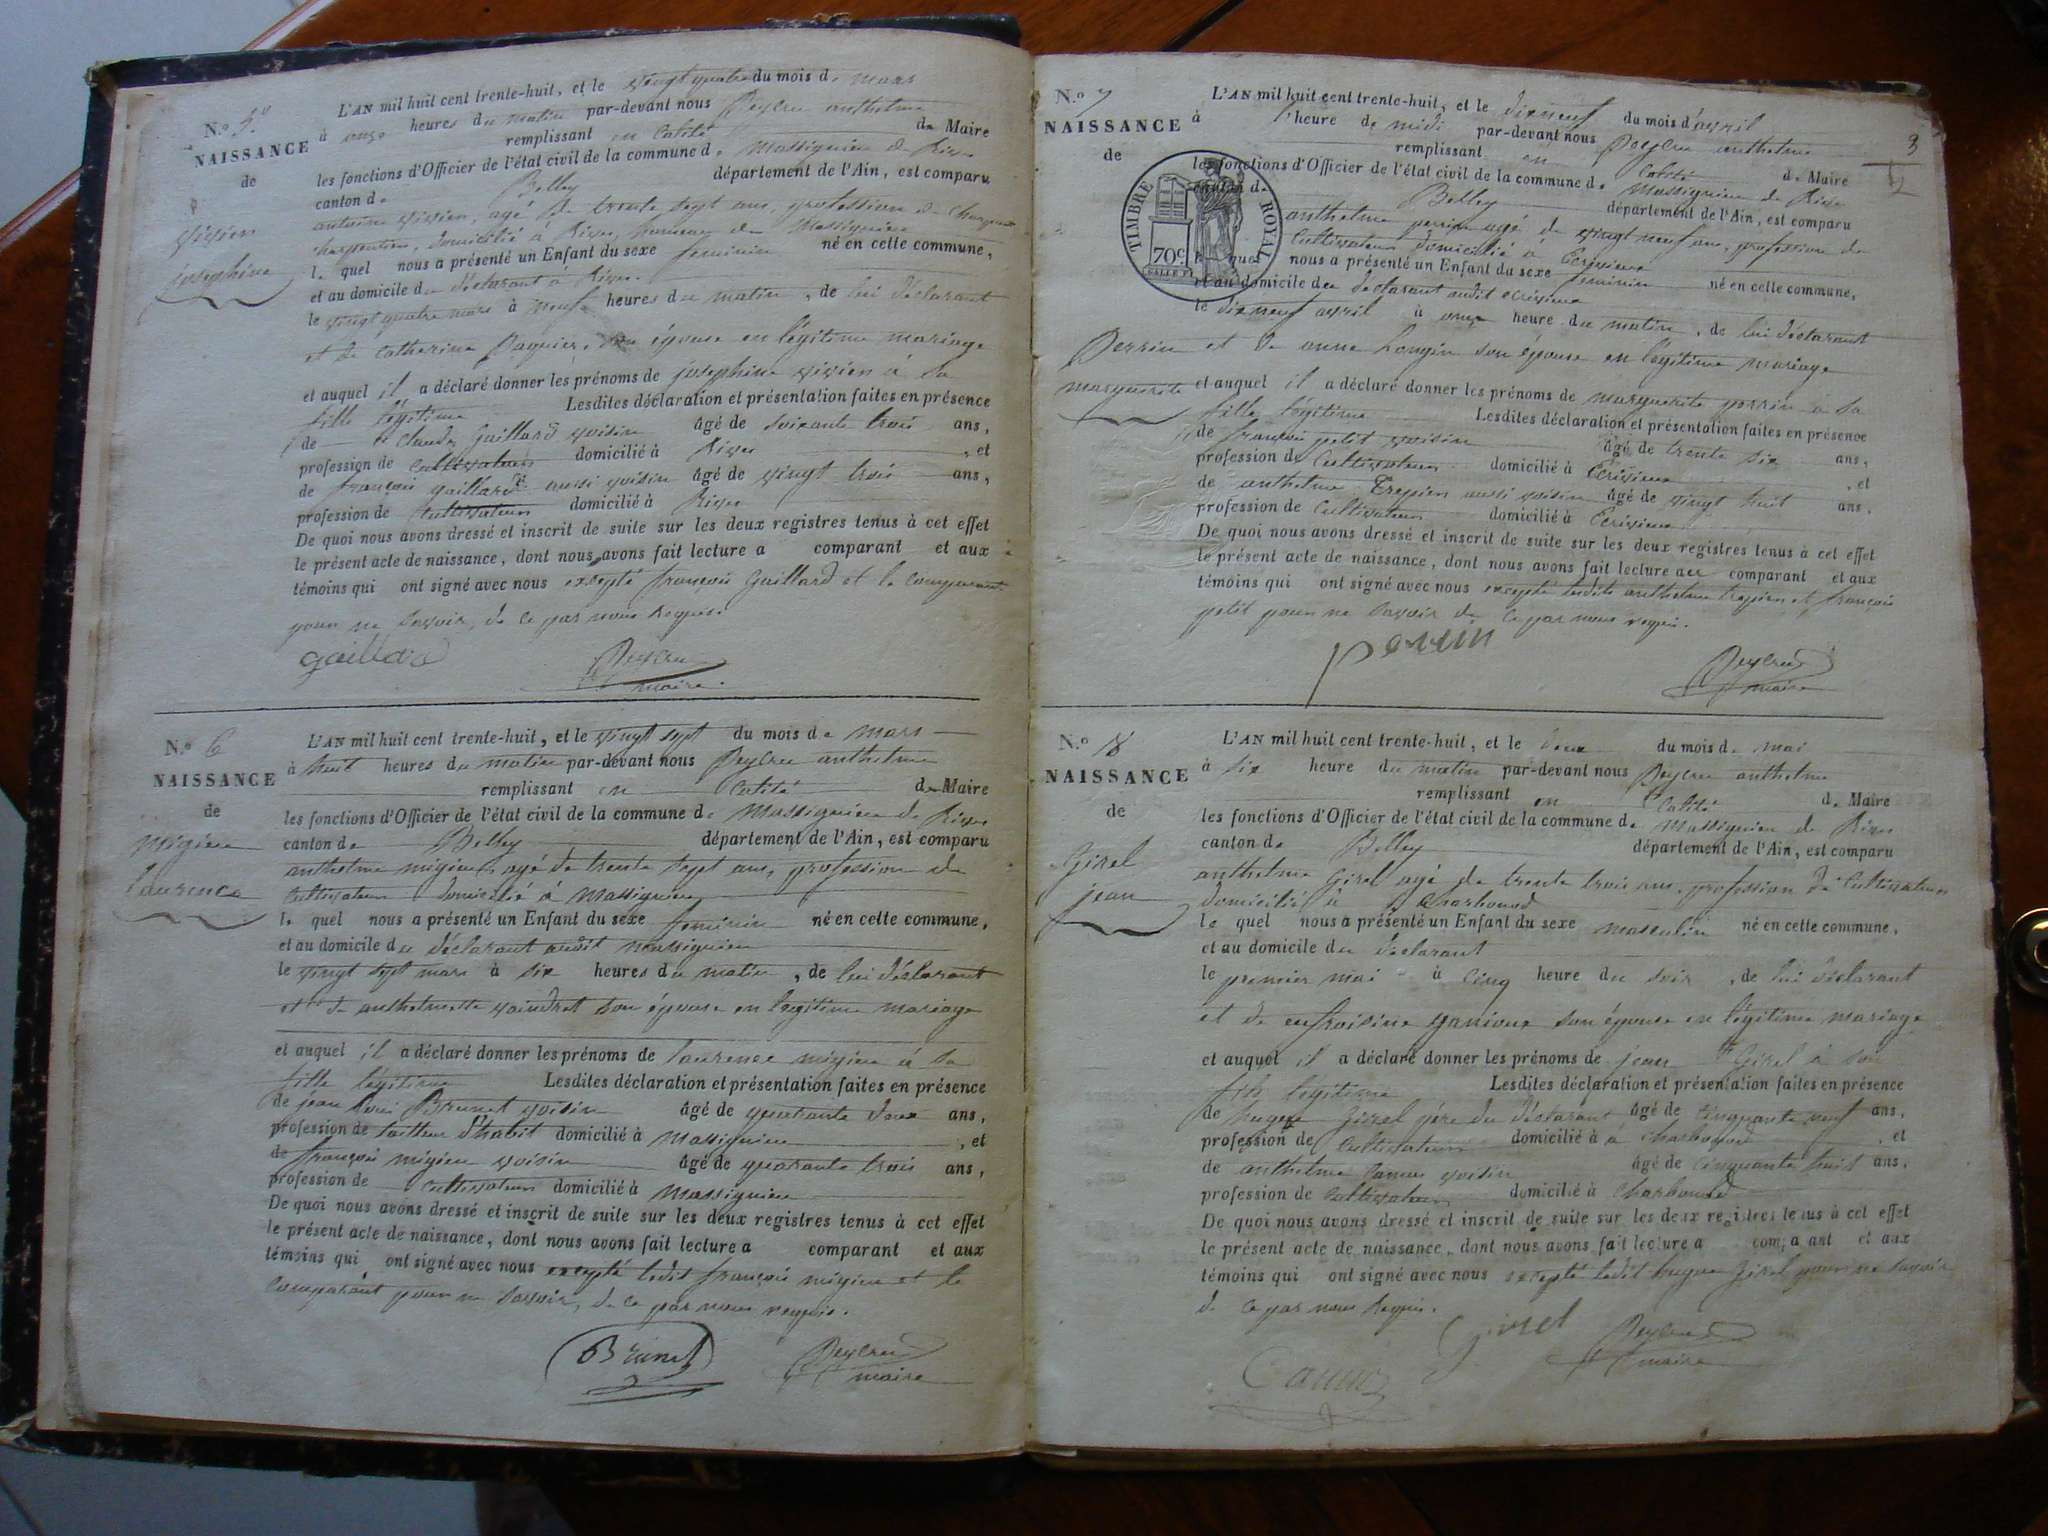 N.º 5.
NAISSANCE
de
vivien
josephine
L'AN mil huit cent trente-huit, et le vingt quatre du mois de mars
à onze heures du matin par-devant nous Peycru anthelme
remplissant en Calité de Maire
les fonctions d'Officier de l'état civil de la commune de Massignieu de Rives
canton de Belley département de l'Ain, est comparu
antoine vivien, agé de trente sept ans, profession de
charpentier, domicilié à Rives, hameau de Massignieu
le quel nous a présenté un Enfant du sexe feminin né en cette commune,
et au domicile du déclarant à Rives.
le vingt quatre mars à neuf heures du matin, de lui déclarant
et de Catherine Paquier, son épouse en légitime mariage
et auquel il a déclaré donner les prénoms de josephine vivien à sa
fille légitime Lesdites déclaration et présentation faites en présence
de Claude Gaillard voisin âgé de soixante trois ans,
profession de Cultivateur domicilié à Rives, et
de françois gaillard aussi voisin âgé de vingt trois ans,
profession de Cultivateur domicilié à Rives
De quoi nous avons dressé et inscrit de suite sur les deux registres tenus à cet effet
le présent acte de naissance, dont nous avons fait lecture a comparant et aux
témoins qui ont signé avec nous excepté françois Gaillard et le comparant
pour ne savoir, de ce par nous Requis.
gaillard Peycru
maire
N.º 6
NAISSANCE
de
migieu
laurence
L'AN mil huit cent trente-huit, et le vingt sept du mois de mars
à huit heures du matin par-devant nous Peycru anthelme
remplissant en Calité de Maire
les fonctions d'Officier de l'état civil de la commune de Massignieu de Rives
canton de Belley département de l'Ain, est comparu
anthelme migieu, agé de trente sept ans, profession de
cultivateur domicilié à Massignieu
le quel nous a présenté un Enfant du sexe feminin né en cette commune,
et au domicile du déclarant audit Massignieu
le vingt sept mars à six heures du matin, de lui déclarant
et de anthelmette son épouse en legitime mariage
et auquel il a déclaré donner les prénoms de laurence migieu à sa
fille légitime Lesdites déclaration et présentation faites en présence
de jean loui Brunet voisin âgé de quarante deux ans,
profession de tailleur d'habit domicilié à Massignieu, et
de françois migieu voisin âgé de quarante trois ans,
profession de cultivateur domicilié à Massignieu
De quoi nous avons dressé et inscrit de suite sur les deux registres tenus à cet effet
le présent acte de naissance, dont nous avons fait lecture a comparant et aux
témoins qui ont signé avec nous excepté ledit françois migieu et le
Comparant pour ne savoir, de ce par nous requis.
Brunet Peycru
maire
3
N.º 7
NAISSANCE
de
TIMBRE ROYAL
70c.
Perrin
marguerite
L'AN mil huit cent trente-huit, et le dixneuf du mois d'avril
à l'heure de midi par-devant nous Peycru anthelme
remplissant en Calité de Maire
les fonctions d'Officier de l'état civil de la commune de Massignieu de Rives
canton de Belley département de l'Ain, est comparu
anthelme perrin agé de vingt neuf ans, profession de
cultivateur domicilié à Ecrivieux
le quel nous a présenté un Enfant du sexe feminin né en cette commune,
et au domicile du déclarant audit ecrivieux
le dixneuf avril à onze heure du matin, de lui déclarant
et de anne Longin son épouse en légitime mariage
et auquel il a déclaré donner les prénoms de marguerite perrin à sa
fille légitime Lesdites déclaration et présentation faites en présence
de françois petit voisin âgé de trente six ans,
profession de Cultivateur domicilié à Ecrivieux, et
de anthelme Trepier aussi voisin âgé de vingt huit ans,
profession de Cultivateur domicilié à Ecrivieux
De quoi nous avons dressé et inscrit de suite sur les deux registres tenus à cet effet
le présent acte de naissance, dont nous avons fait lecture au comparant et aux
témoins qui ont signé avec nous excepté lesdits anthelme trepier et françois
petit pour ne savoir de ce par nous requis.
perrin Peycru
maire
N.º 8
NAISSANCE
de
Girel
jean
L'AN mil huit cent trente-huit, et le deux du mois de mai
à six heure du matin par-devant nous Peycru anthelme
remplissant en Calité de Maire
les fonctions d'Officier de l'état civil de la commune de Massignieu de Rives
canton de Belley département de l'Ain, est comparu
anthelme Girel agé de trente trois ans, profession de Cultivateur
domicilié à Charbonod
le quel nous a présenté un Enfant du sexe masculin né en cette commune,
et au domicile du declarant
le premier mai à cinq heure du soir, de lui déclarant
et de enfroisine son épouse en légitime mariage
et auquel il a déclaré donner les prénoms de jean Girel à son
fils legitime Lesdites déclaration et présentation faites en présence
de hugue Girel père du déclarant âgé de cinquante neuf ans,
profession de Cultivateur domicilié à Charbonod, et
de anthelme voisin âgé de cinquante huit ans,
profession de Cultivateur domicilié à Charbonod
De quoi nous avons dressé et inscrit de suite sur les deux registres tenus à cet effet
le présent acte de naissance, dont nous avons fait lecture a comparant et aux
témoins qui ont signé avec nous excepté ledit hugue Girel pour ne savoir
de ce par nous Requis.
Girel Peycru
maire